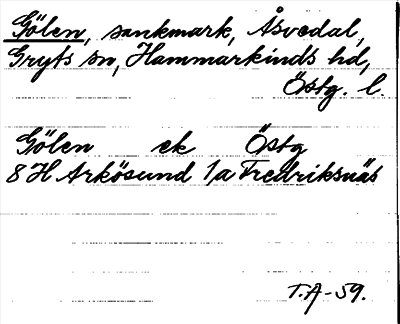 Gölen, sankmark, Åsvedal,
Gryts sn, Hammarkinds hd,
Östg. l.
Gölen ek Östg
8 H Arkösund 1/a Fredriksnäs
T.A-59.